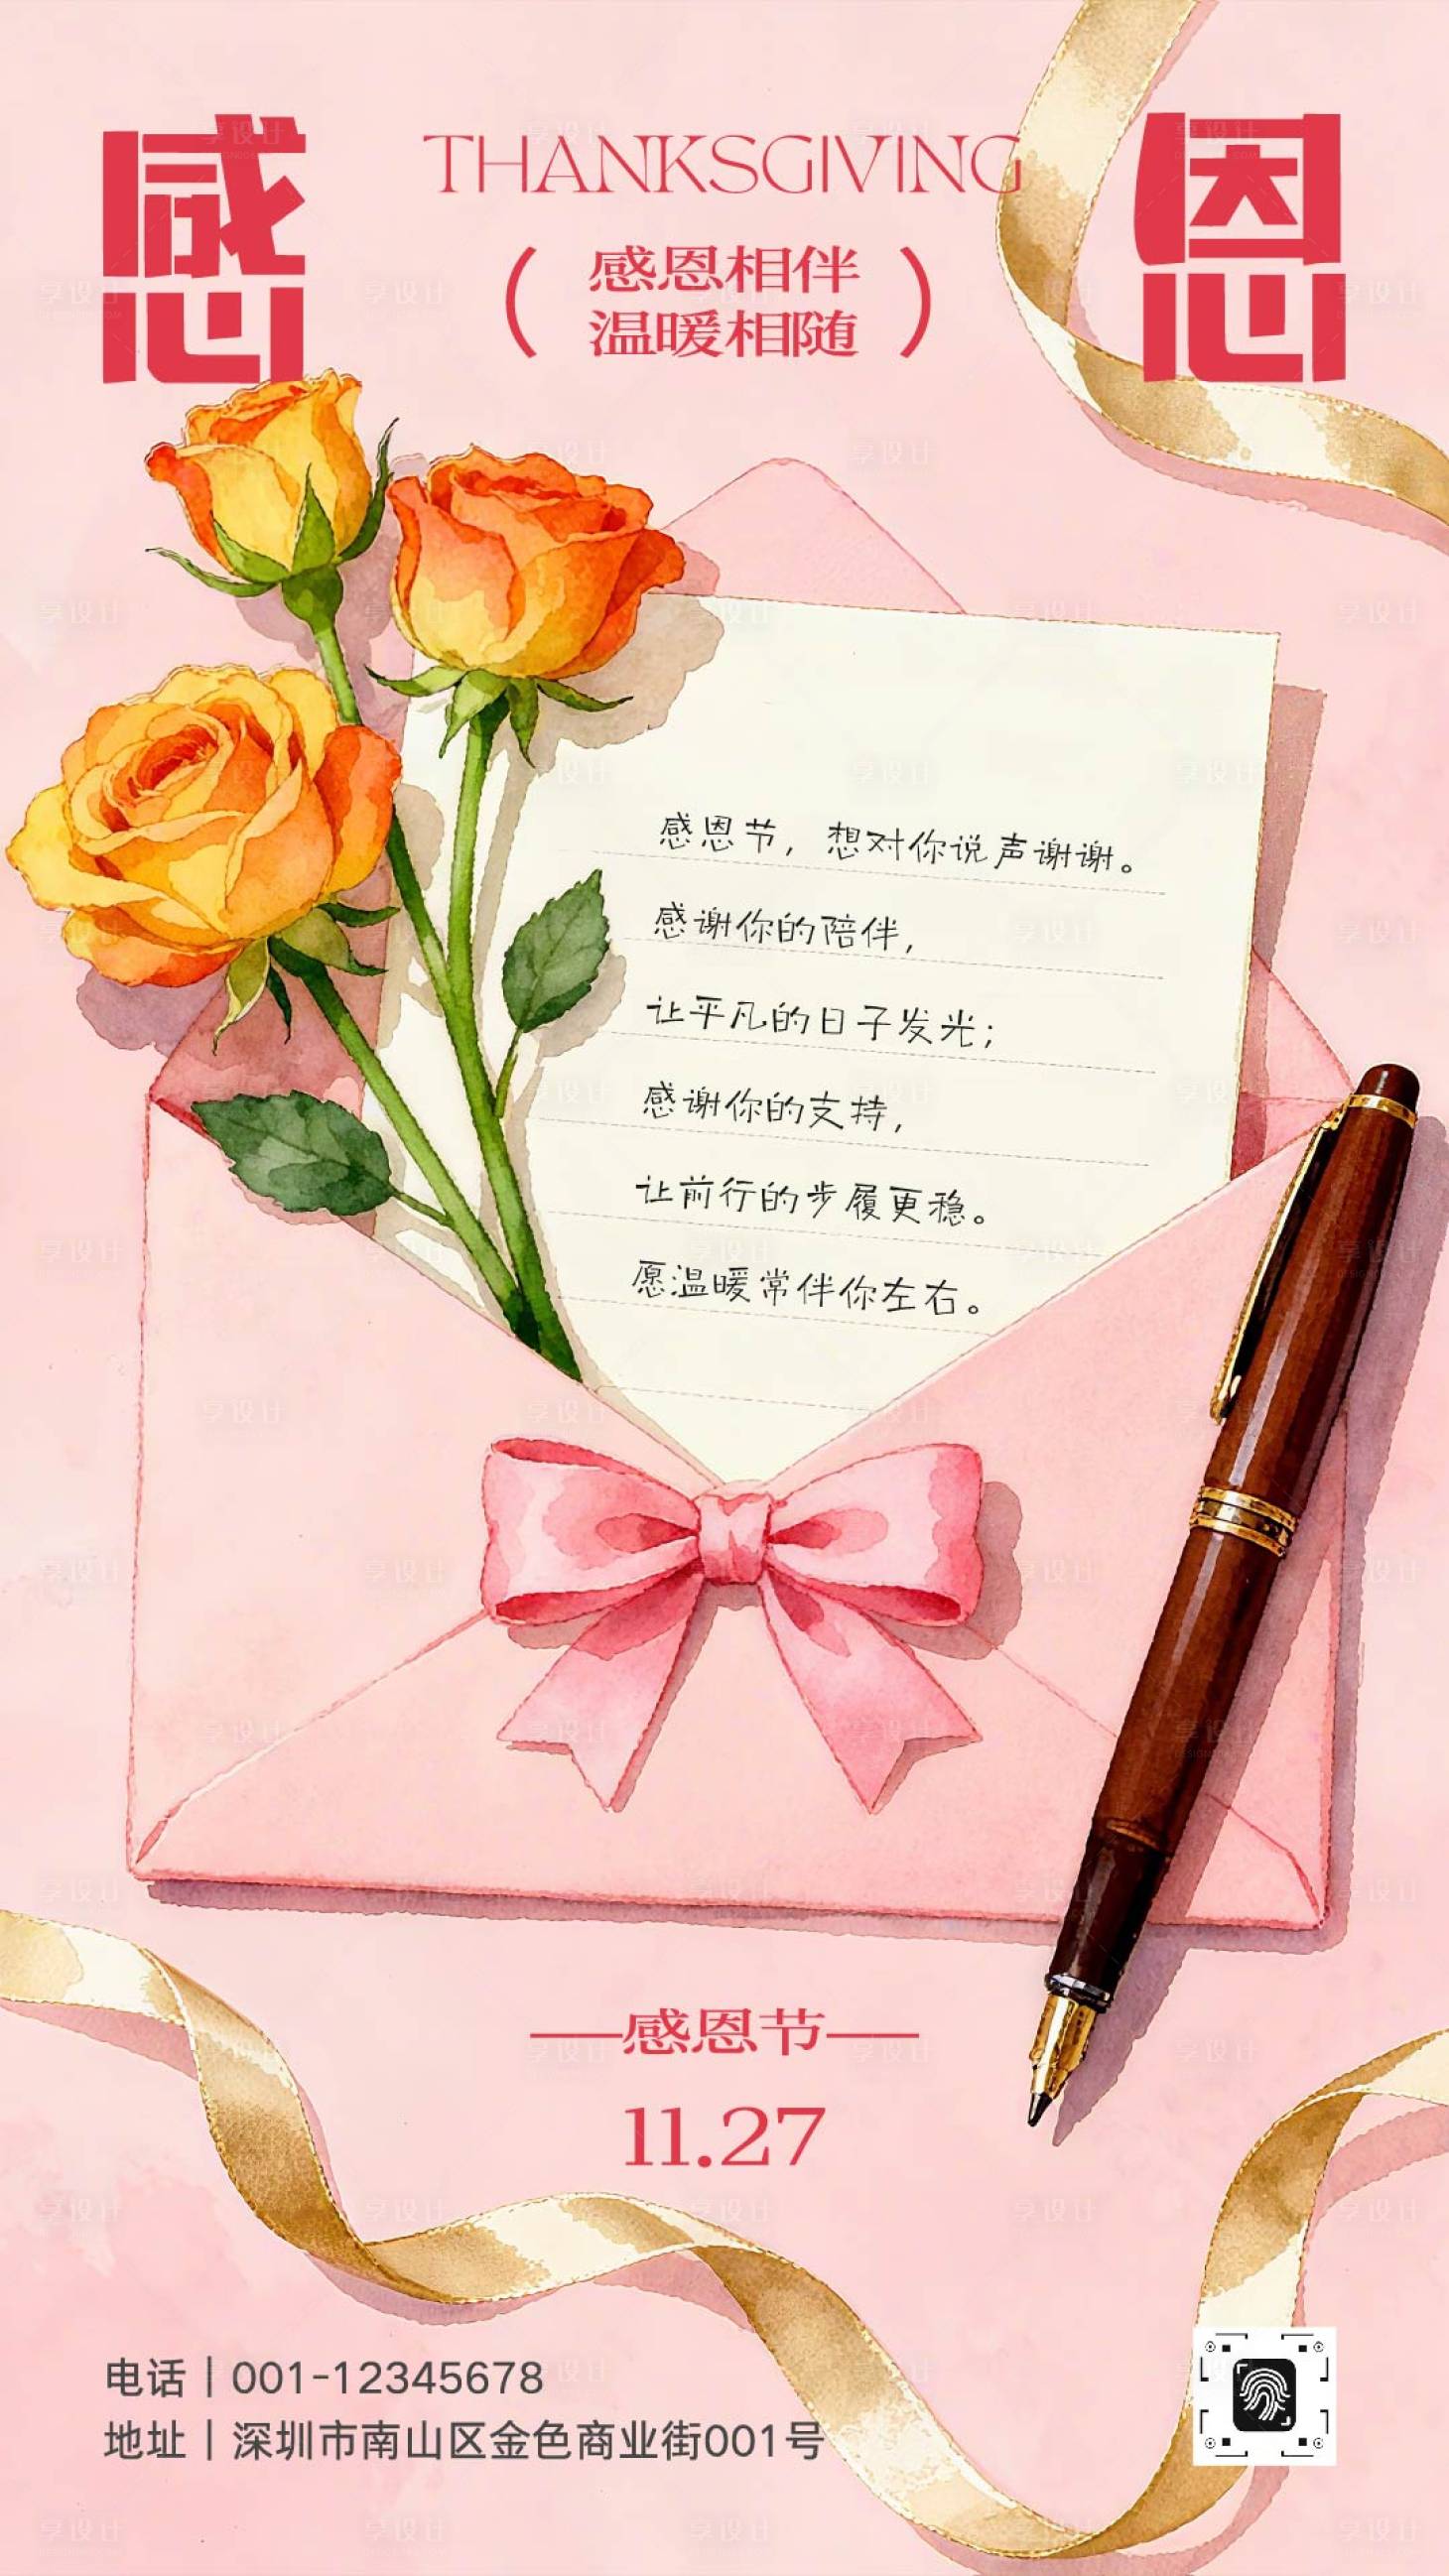 感 THANKSGIVING 恩
( 感恩相伴
温暖相随 )
感恩节，想对你说声谢谢。
感谢你的陪伴，
让平凡的日子发光；
感谢你的支持，
让前行的步履更稳。
愿温暖常伴你左右。
——感恩节——
11.27
电话｜001-12345678
地址｜深圳市南山区金色商业街001号
享设计